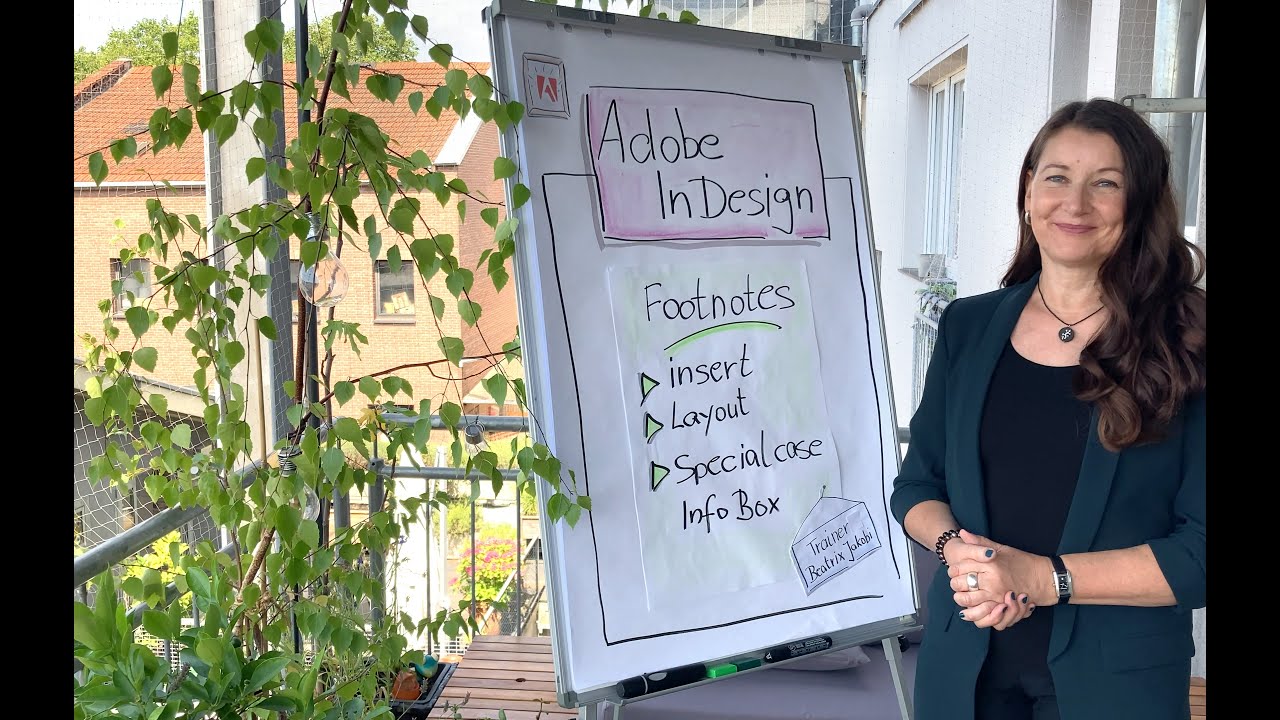 Adobe
InDesign
Footnotes
insert
Layout
Special case
Info Box
Trainer
Beatrix Jakobi